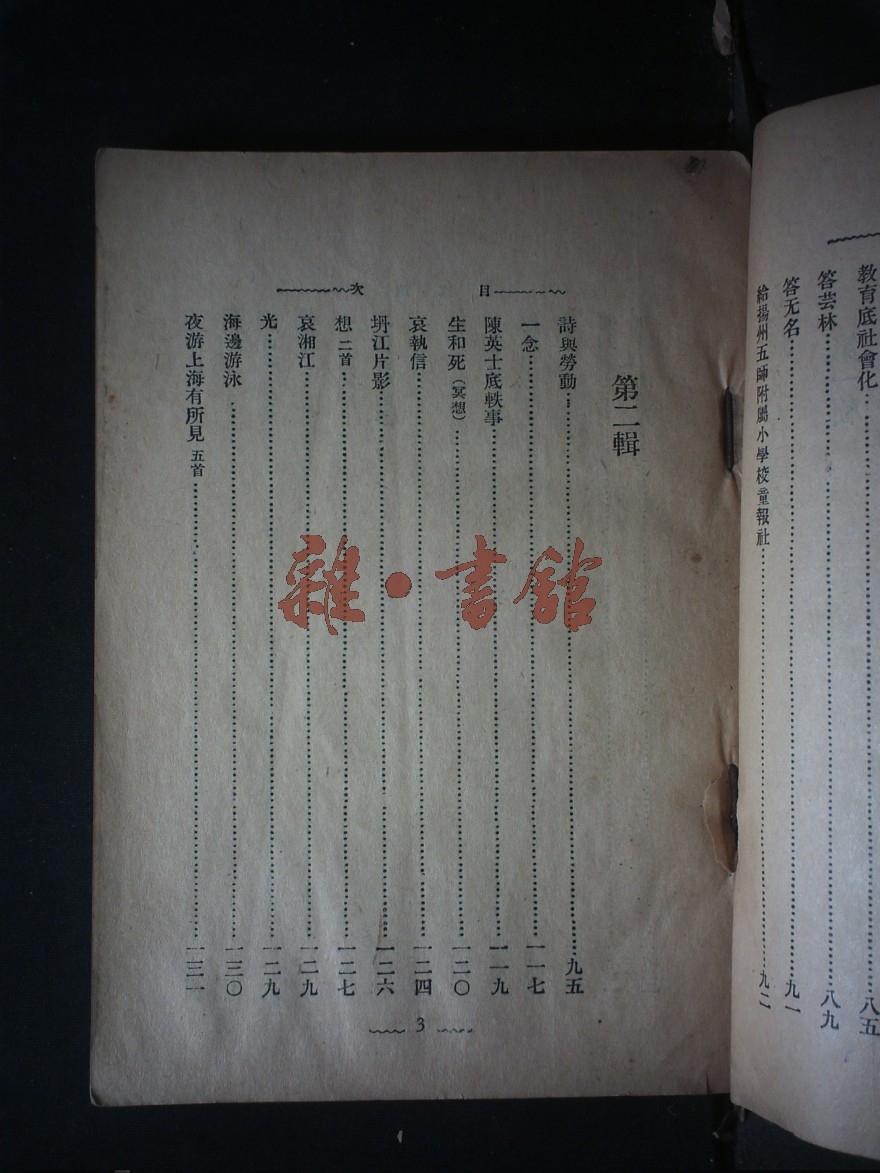 教育底社會化……八五
答芸林……八九
答无名……九一
給揚州五師附屬小學校童報社……九二
目次
第二輯
詩與勞動……九五
一念……一一七
陳英士底軼事……一一九
生和死（冥想）……一二〇
哀執信……一二四
坍江片影……一二六
想 二首……一二七
哀湘江……一二九
光……一二九
海邊游泳……一三〇
夜游上海有所見 五首……一三一
3
雜·書館